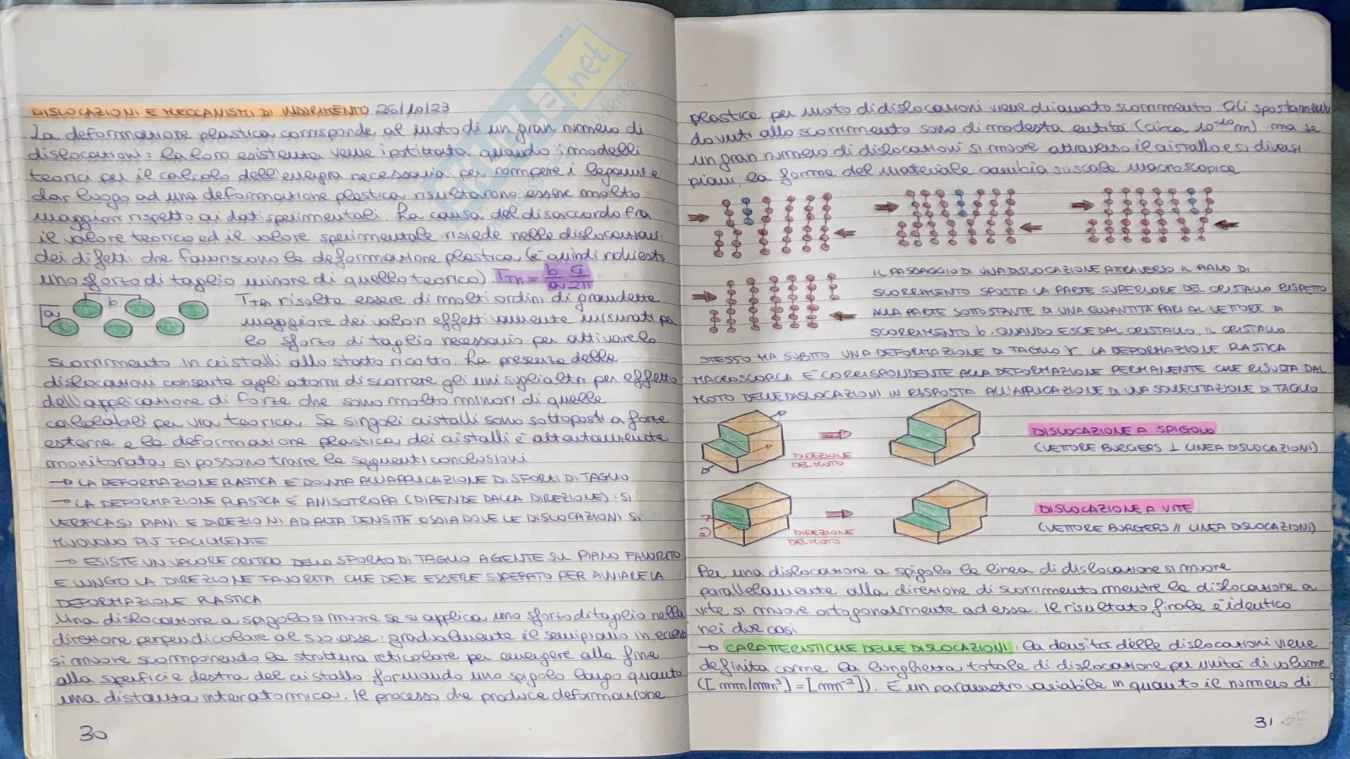 DISLOCAZIONI E MECCANISMI DI INDURIMENTO 26/10/23
La deformazione plastica corrisponde al moto di un gran numero di
dislocazioni: la loro esistenza venne ipotizzata quando i modelli
teorici per il calcolo dell'energia necessaria per rompere i legami e
dar luogo ad una deformazione plastica risultarono essere molto
maggiori rispetto ai dati sperimentali. La causa del disaccordo fra
il valore teorico ed il valore sperimentale risiede nelle dislocazioni:
dei difetti che favoriscono la deformazione plastica (è quindi richiesto
uno sforzo di taglio minore di quello teorico) τm = b G / a 2π
a b
τm risulta essere di molti ordini di grandezza
maggiore dei valori effettivamente misurati per
lo sforzo di taglio necessario per attivare lo
scorrimento in cristalli allo stato ricotto. La presenza delle
dislocazioni consente agli atomi di scorrere gli uni sugli altri per effetto
dell'applicazione di forze che sono molto minori di quelle
calcolabili per via teorica. Se singoli cristalli sono sottoposti a forze
esterne e la deformazione plastica dei cristalli è attentamente
monitorata, si possono trarre le seguenti conclusioni
→ LA DEFORMAZIONE PLASTICA È DOVUTA ALL'APPLICAZIONE DI SFORZI DI TAGLIO
→ LA DEFORMAZIONE PLASTICA È ANISOTROPA (DIPENDE DALLA DIREZIONE): SI
VERIFICA SU PIANI E DIREZIONI AD ALTA DENSITÀ OSSIA DOVE LE DISLOCAZIONI SI
MUOVONO PIÙ FACILMENTE
→ ESISTE UN VALORE CRITICO DELLO SFORZO DI TAGLIO AGENTE SUL PIANO FAVORITO
E LUNGO LA DIREZIONE FAVORITA CHE DEVE ESSERE SUPERATO PER AVVIARE LA
DEFORMAZIONE PLASTICA
Una dislocazione a spigolo si muove se si applica uno sforzo di taglio nella
direzione perpendicolare al suo asse: gradualmente il semipiano in eccesso
si muove scomponendo la struttura reticolare per emergere alla fine
alla superficie destra del cristallo formando uno spigolo largo quanto
una distanza interatomica. Il processo che produce deformazione
30
plastica per moto di dislocazioni viene chiamato scorrimento. Gli spostamenti
dovuti allo scorrimento sono di modesta entità (circa 10⁻¹⁰m) ma se
un gran numero di dislocazioni si muove attraverso il cristallo e su diversi
piani, la forma del materiale cambia su scala macroscopica
IL PASSAGGIO DI UNA DISLOCAZIONE ATTRAVERSO IL PIANO DI
SCORRIMENTO SPOSTA LA PARTE SUPERIORE DEL CRISTALLO RISPETTO
ALLA PARTE SOTTOSTANTE DI UNA QUANTITÀ PARI AL VETTORE DI
SCORRIMENTO b. QUANDO ESCE DAL CRISTALLO, IL CRISTALLO
STESSO HA SUBITO UNA DEFORMAZIONE DI TAGLIO γ. LA DEFORMAZIONE PLASTICA
MACROSCOPICA È CORRISPONDENTE ALLA DEFORMAZIONE PERMANENTE CHE RISULTA DAL
MOTO DELLE DISLOCAZIONI IN RISPOSTA ALL'APPLICAZIONE DI UNA SOLLECITAZIONE DI TAGLIO
DIREZIONE
DEL MOTO
DISLOCAZIONE A SPIGOLO
(VETTORE BURGERS ⊥ LINEA DISLOCAZIONI)
DIREZIONE
DEL MOTO
DISLOCAZIONE A VITE
(VETTORE BURGERS // LINEA DISLOCAZIONI)
Per una dislocazione a spigolo la linea di dislocazione si muove
parallelamente alla direzione di scorrimento mentre la dislocazione a
vite si muove ortogonalmente ad essa. Il risultato finale è identico
nei due casi
→ CARATTERISTICHE DELLE DISLOCAZIONI: la densità delle dislocazioni viene
definita come la lunghezza totale di dislocazione per unità di volume
([mm/mm³] = [mm⁻²]). È un parametro variabile in quanto il numero di
31